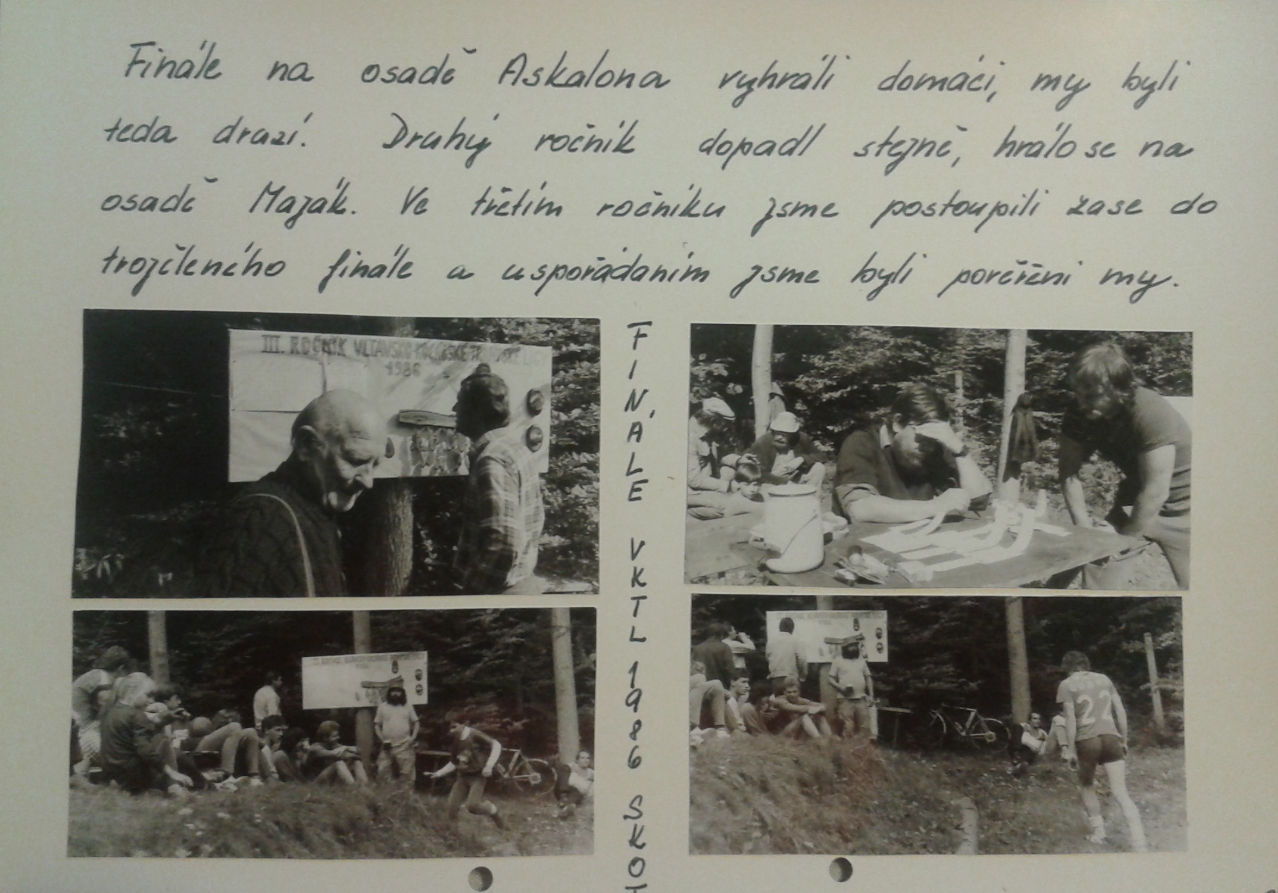 Finále na osadě Askalona vyhráli domácí, my byli
teda druzí. Druhý ročník dopadl stejně, hrálo se na
osadě Maják. Ve třetím ročníku jsme postoupili zase do
trojčleného finále a uspořádaním jsme byli pověřeni my.
III. ROČNÍK VLTAVSKO
1986
FINÁLE VKTL 1986 SKOT
22